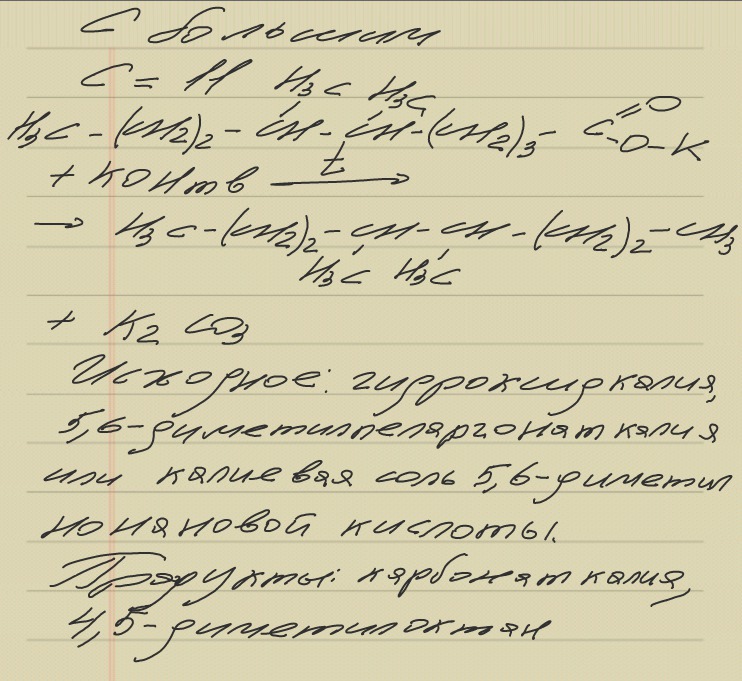 С большим
C = 11 H3C H3C
H3C - (CH2)2 - CH - CH - (CH2)3 - C =O -O-K
+ KOH тв t →
→ H3C - (CH2)2 - CH - CH - (CH2)2 - CH3
H3C H3C
+ K2CO3
Исходное: гидроксид калия,
5,6-диметилпеларгонат калия
или калиевая соль 5,6-диметил
нонановой кислоты.
Продукты: карбонат калия,
4,5-диметилоктан